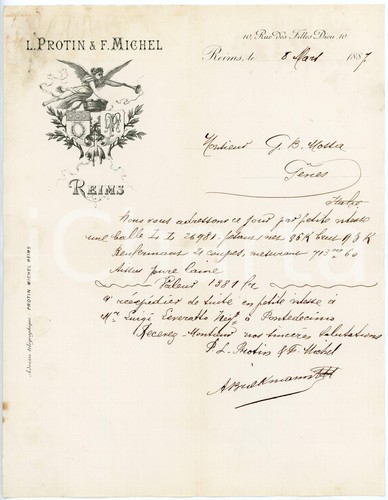 L. PROTIN & F. MICHEL
REIMS
Adresse télégraphique: PROTIN MICHEL REIMS
10, Rue des Filles Dieu, 10
Reims, le 8 Mars 1887
Monsieur G. B. Mossa
Gênes
Italie
Nous vous adressons ce jour par petite vitesse
une balle 26981. pesant net 95K brut
Renfermant coupes, mesurant 713 m 60
tissus pure laine
Valeur 1381 fr
à réexpédier de suite en petite vitesse à
Mr. Luigi Leveratto à Pontedecimo
Recevez Monsieur nos sincères salutations
P. L. Protin & F. Michel